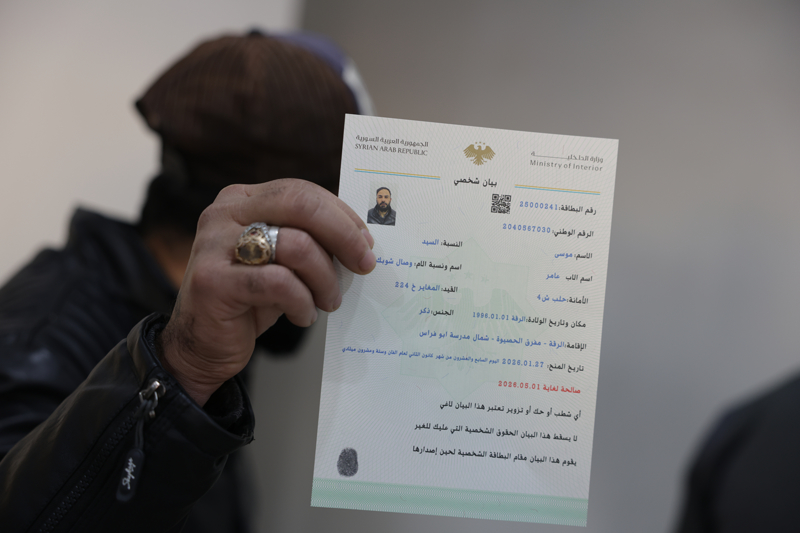 الجمهورية العربية السورية
SYRIAN ARAB REPUBLIC
وزارة الداخلية
Ministry of Interior
بيان شخصي
رقم البطاقة: 25000241
الرقم الوطني: 2040567030
الاسم: موسى
النسبة: السيد
اسم الاب: عامر
اسم ونسبة الام: وصال شويك
الأمانة: حلب ش4
القيد: المغاير خ 224
مكان وتاريخ الولادة: الرقة 1996.01.01
الجنس: ذكر
الإقامة: الرقة - مفرق الحصيوة - شمال مدرسة ابو فراس
تاريخ المنح: 2026.01.27 اليوم السابع والعشرون من شهر كانون الثاني لعام الفان وستة وعشرون ميلادي
صالحة لغاية 2026.05.01
أي شطب أو حك أو تزوير تعتبر هذا البيان لاغي
لا يسقط هذا البيان الحقوق الشخصية التي عليك للغير
يقوم هذا البيان مقام البطاقة الشخصية لحين إصدارها